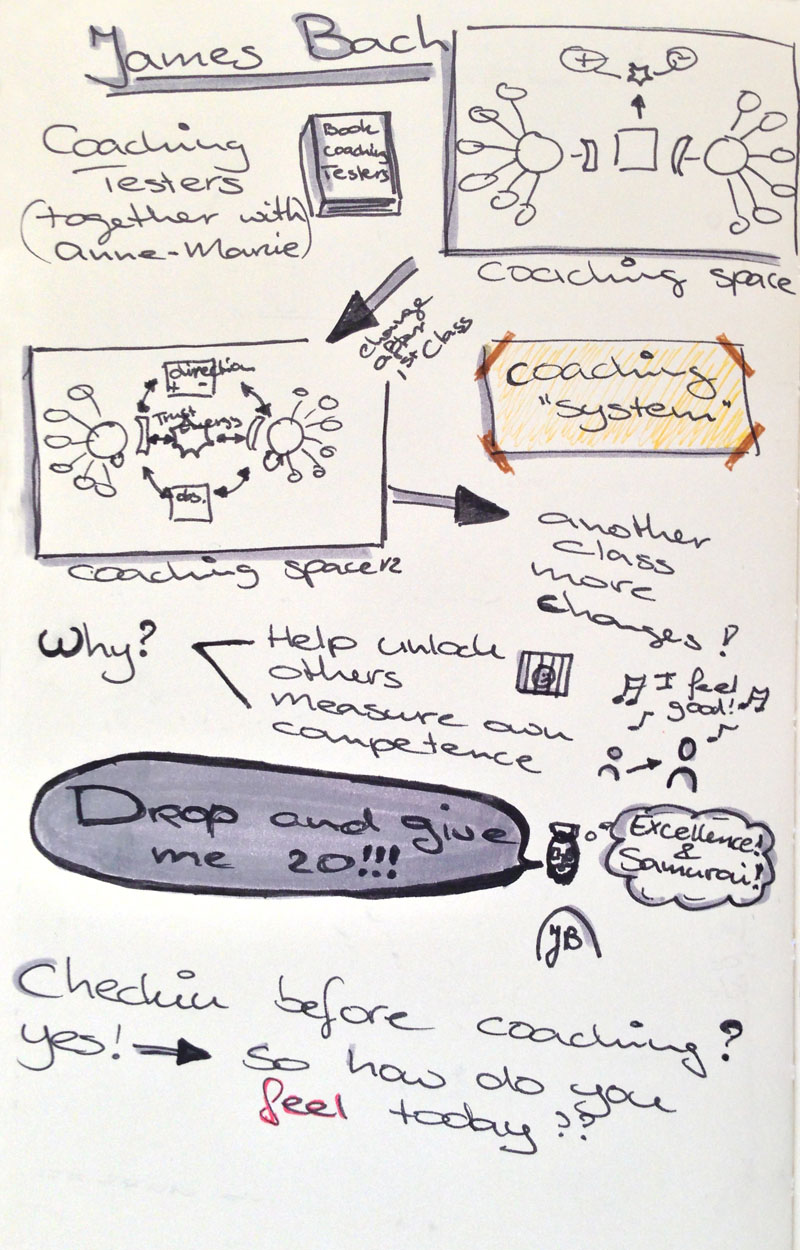 James Bach
Coaching
Testers
(together with
Anne-Marie)
Book
Coaching
Testers
+ -
coaching space
change
after
1st Class
direction
+ -
Trust
Energy
coaching space v2
coaching
"system"
another
class
more
changes!
Why?
Help unlock
others
measure own
competence
I feel
good!
Drop and give
me 20!!!
Excellence!
&
Samurai!
JB
Checkin before coaching?
yes! so how do you
feel today??